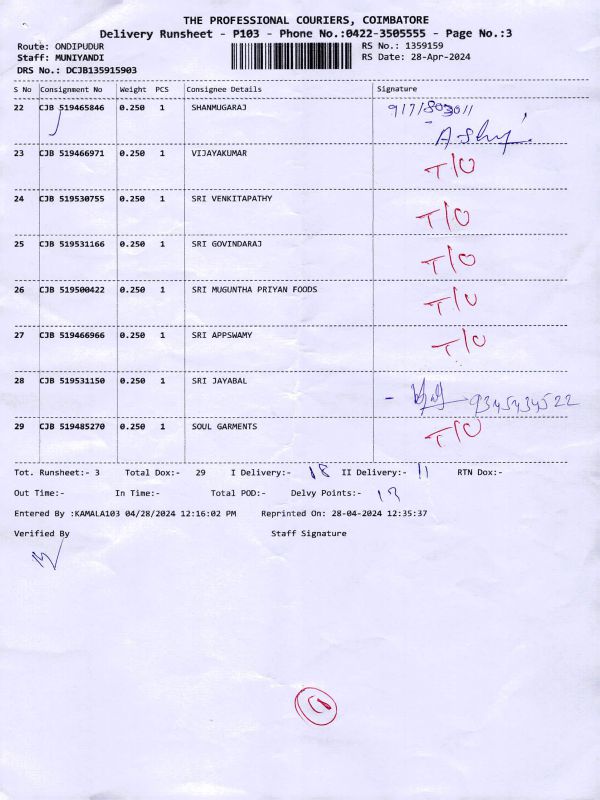 THE PROFESSIONAL COURIERS, COIMBATORE
Delivery Runsheet - P103 - Phone No.:0422-3505555 - Page No.:3
Route: ONDIPUDUR RS No.: 1359159
Staff: MUNIYANDI RS Date: 28-Apr-2024
DRS No.: DCJB135915903
S No Consignment No Weight PCS Consignee Details Signature
22 CJB 519465846 0.250 1 SHANMUGARAJ
23 CJB 519466971 0.250 1 VIJAYAKUMAR T/O
24 CJB 519530755 0.250 1 SRI VENKITAPATHY T/O
25 CJB 519531166 0.250 1 SRI GOVINDARAJ T/O
26 CJB 519500422 0.250 1 SRI MUGUNTHA PRIYAN FOODS T/O
27 CJB 519466966 0.250 1 SRI APPSWAMY T/O
28 CJB 519531150 0.250 1 SRI JAYABAL 9345434522
29 CJB 519485270 0.250 1 SOUL GARMENTS T/O
Tot. Runsheet:- 3 Total Dox:- 29 I Delivery:- 18 II Delivery:- 11 RTN Dox:-
Out Time:- In Time:- Total POD:- Delvy Points:-
Entered By :KAMALA103 04/28/2024 12:16:02 PM Reprinted On: 28-04-2024 12:35:37
Verified By Staff Signature